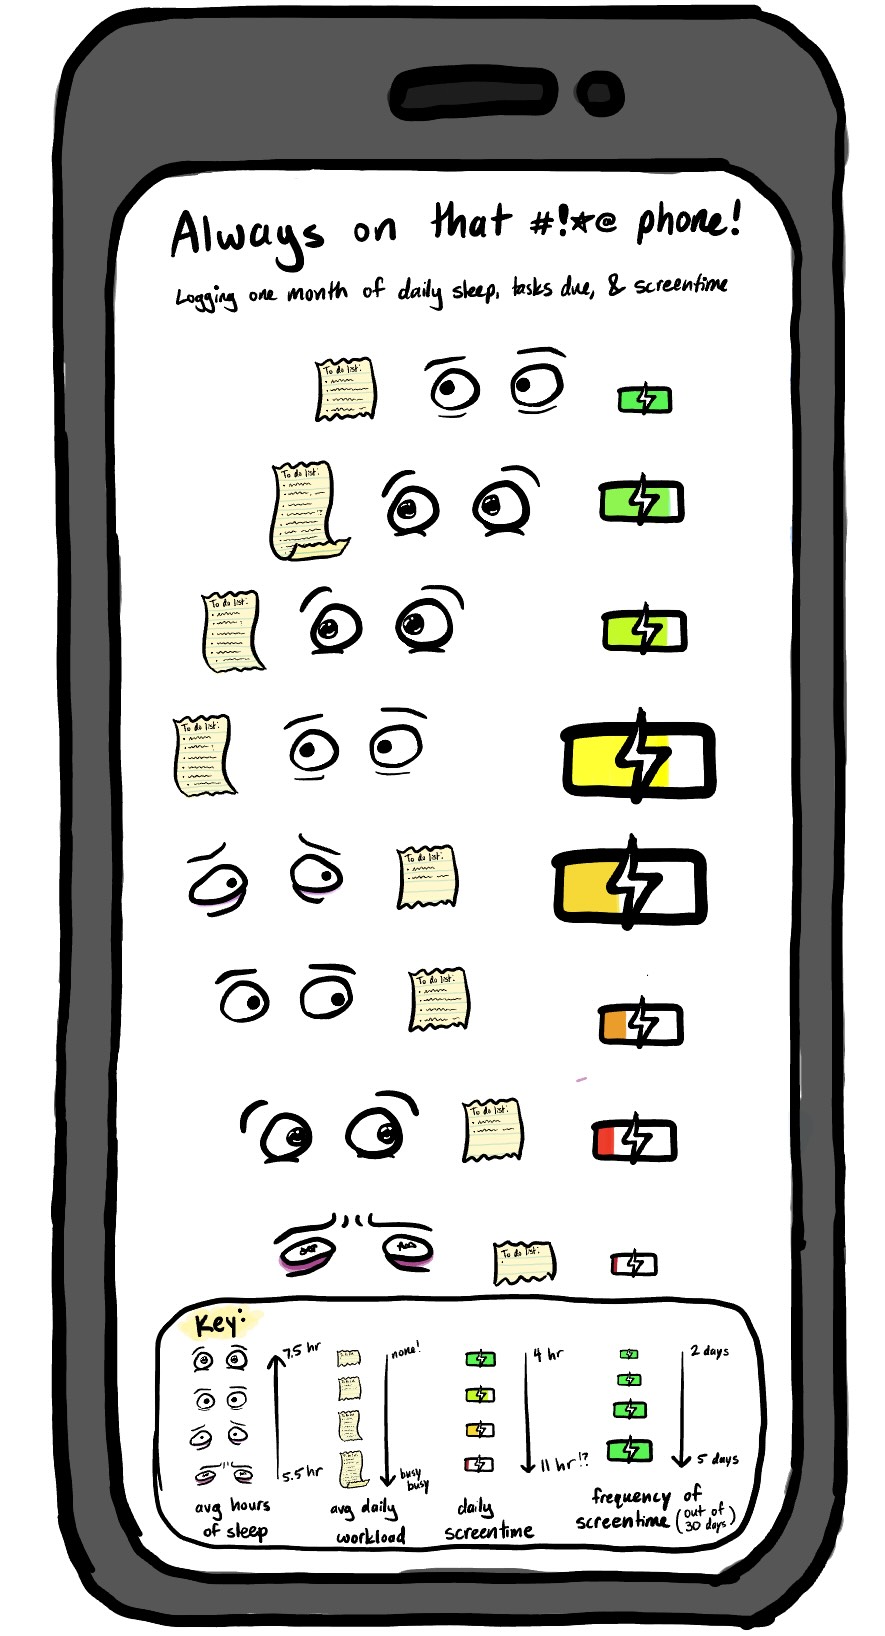 Always on that #!*@ phone!
Logging one month of daily sleep, tasks due, & screentime
To do list:
To do list:
To do list:
To do list:
To do list:
To do list:
To do list:
To do list:
Key:
7.5 hr
5.5 hr
avg hours
of sleep
none!
busy
busy
avg daily
workload
4 hr
11 hr!?
daily
screentime
2 days
5 days
frequency of
screentime (out of
30 days)